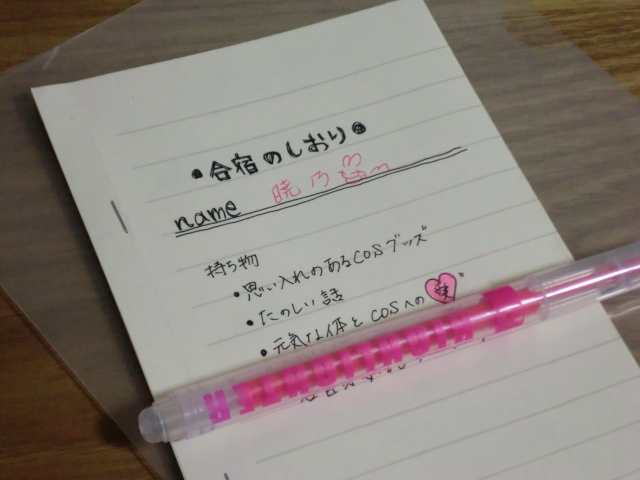 •合宿のしおり•
name 暁乃
持ち物
•思い入れのあるCOSグッズ
•たのしい話
•元気な体とCOSへの愛"